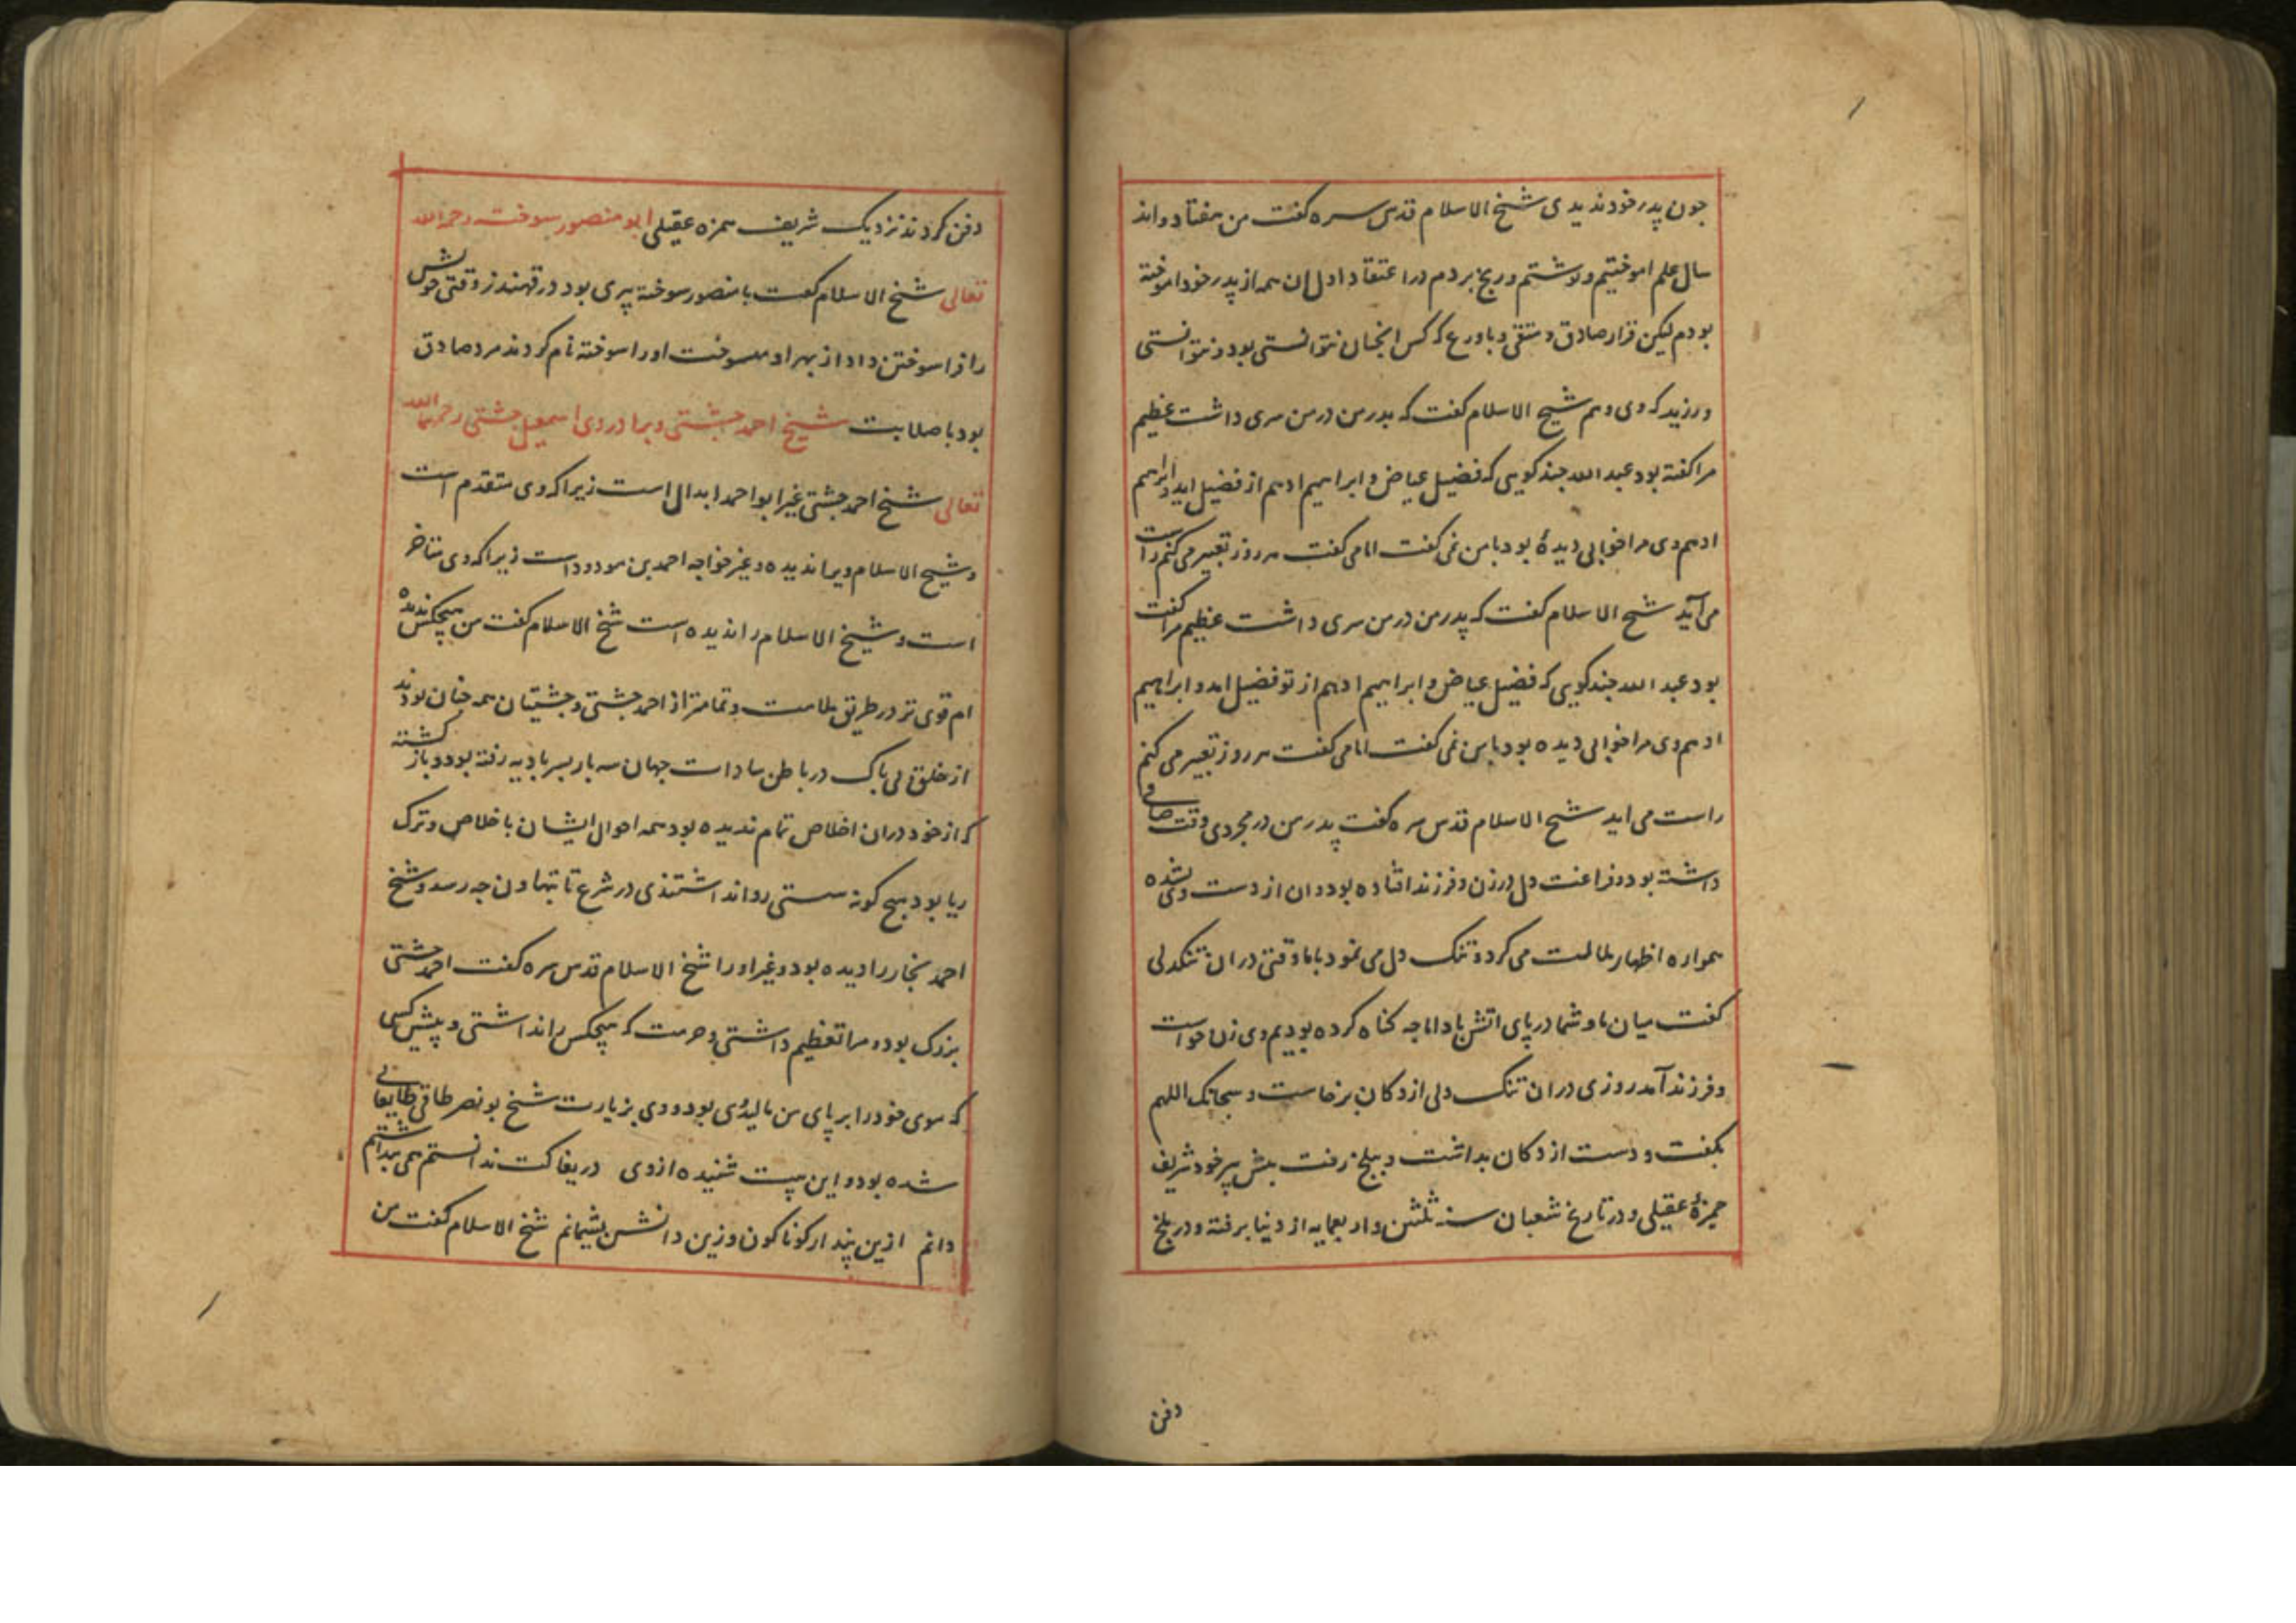 جون پدر خود ندیدی شیخ الاسلام قدس سره گفت من هفتاد واند
سال علم اموختیم ونوشتم ورنج بردم در اعتقاد اول ان همه از پدر خود اموخته
بودم لیکن قرار صادق و متقی وباورع که کس انجنان نتوانستی بود و نتوانستی
ورزید که وی وهم شیخ الاسلام گفت که پدر من در من سری داشت عظیم
مرا گفته بود عبد الله جند گویی که فضیل عیاض و ابراهیم ادهم از فضیل اید و ابراهیم
ادهم وی مرا خوابی دیده بود با من نمی گفت اما می گفت هر روز تعبیر می کنم راست
می آید شیخ الاسلام گفت که پدر من در من سری داشت عظیم مرا گفت
بود عبد الله جند گویی که فضیل عیاض و ابراهیم ادهم از تو فضیل امد و ابراهیم
ادهم وی مرا خوابی دیده بود با من نمی گفت اما می گفت هر روز تعبیر می کنم
راست می اید شیخ الاسلام قدس سره گفت پدر من در مجردی وقت صافی
داشته بود و فراغت دل در زن و فرزند افتاده بود و ان از دست وی بشده
همواره اظهار ملالت می کرد و تنک دل می نمود با ما وقتی در ان تنکدلی
گفت میان ما و شما دریای اتش باد اما جه گناه کرده بودیم وی زن خواست
و فرزند آمد روزی در ان تنک دلی از دکان برخاست و سبحانک اللهم
بگفت و دست از دکان بداشت و ببلخ رفت پیش پیر خود شریف
حمزهٔ عقیلی و در تاریخ شعبان سنه ثلثین و اربعمایه از دنیا برفته و در بلخ
دفن
دفن کردند نزدیک شریف حمزه عقیلی ابو منصور سوخته رحمه الله
تعالی شیخ الاسلام گفت با منصور سوخته پیری بود در قهندز وقتی خوش
را فرا سوختن داد از بهر او بسوخت او را سوخته نام کردند مرد صادق
بود با صلابت شیخ احمد جشتی و برادر وی اسمعیل جشتی رحمهما الله
تعالی شیخ احمد جشتی غیر ابو احمد ابدال است زیرا که وی متقدم است
و شیخ الاسلام ویرا ندیده و غیر خواجه احمد بن مودود است زیرا که وی متاخر
است و شیخ الاسلام را ندیده است شیخ الاسلام گفت من هیچکس ندیده
ام قوی تر در طریق ملامت و تمامتر از احمد جشتی و جشتیان همه جنان بودند
از خلق بی باک در باطن سادات جهان سه بار بسر بادیه رفته بود و باز گشته
که از خود در ان اخلاص تمام ندیده بود همه احوال ایشان باخلاص و ترک
ریا بود هیج گونه سستی روا نداشتندی در شرع تا بتهاون جه رسد و شیخ
احمد نجار را دیده بود و غیر او را شیخ الاسلام قدس سره گفت احمد جشتی
بزرک بود و مرا تعظیم داشتی و حرمت که هیچکس را نداشتی و پیش کسی
که موی خود را بر پای من مالیدی بود و وی بزیارت شیخ بو نصر طاقی طایقانی
شده بود و این بیت شنیده از وی دریغا کت ندانستم همی پنداشتم
دانم ازین پندار گوناگون وزین دانش پشیمانم شیخ الاسلام گفت من